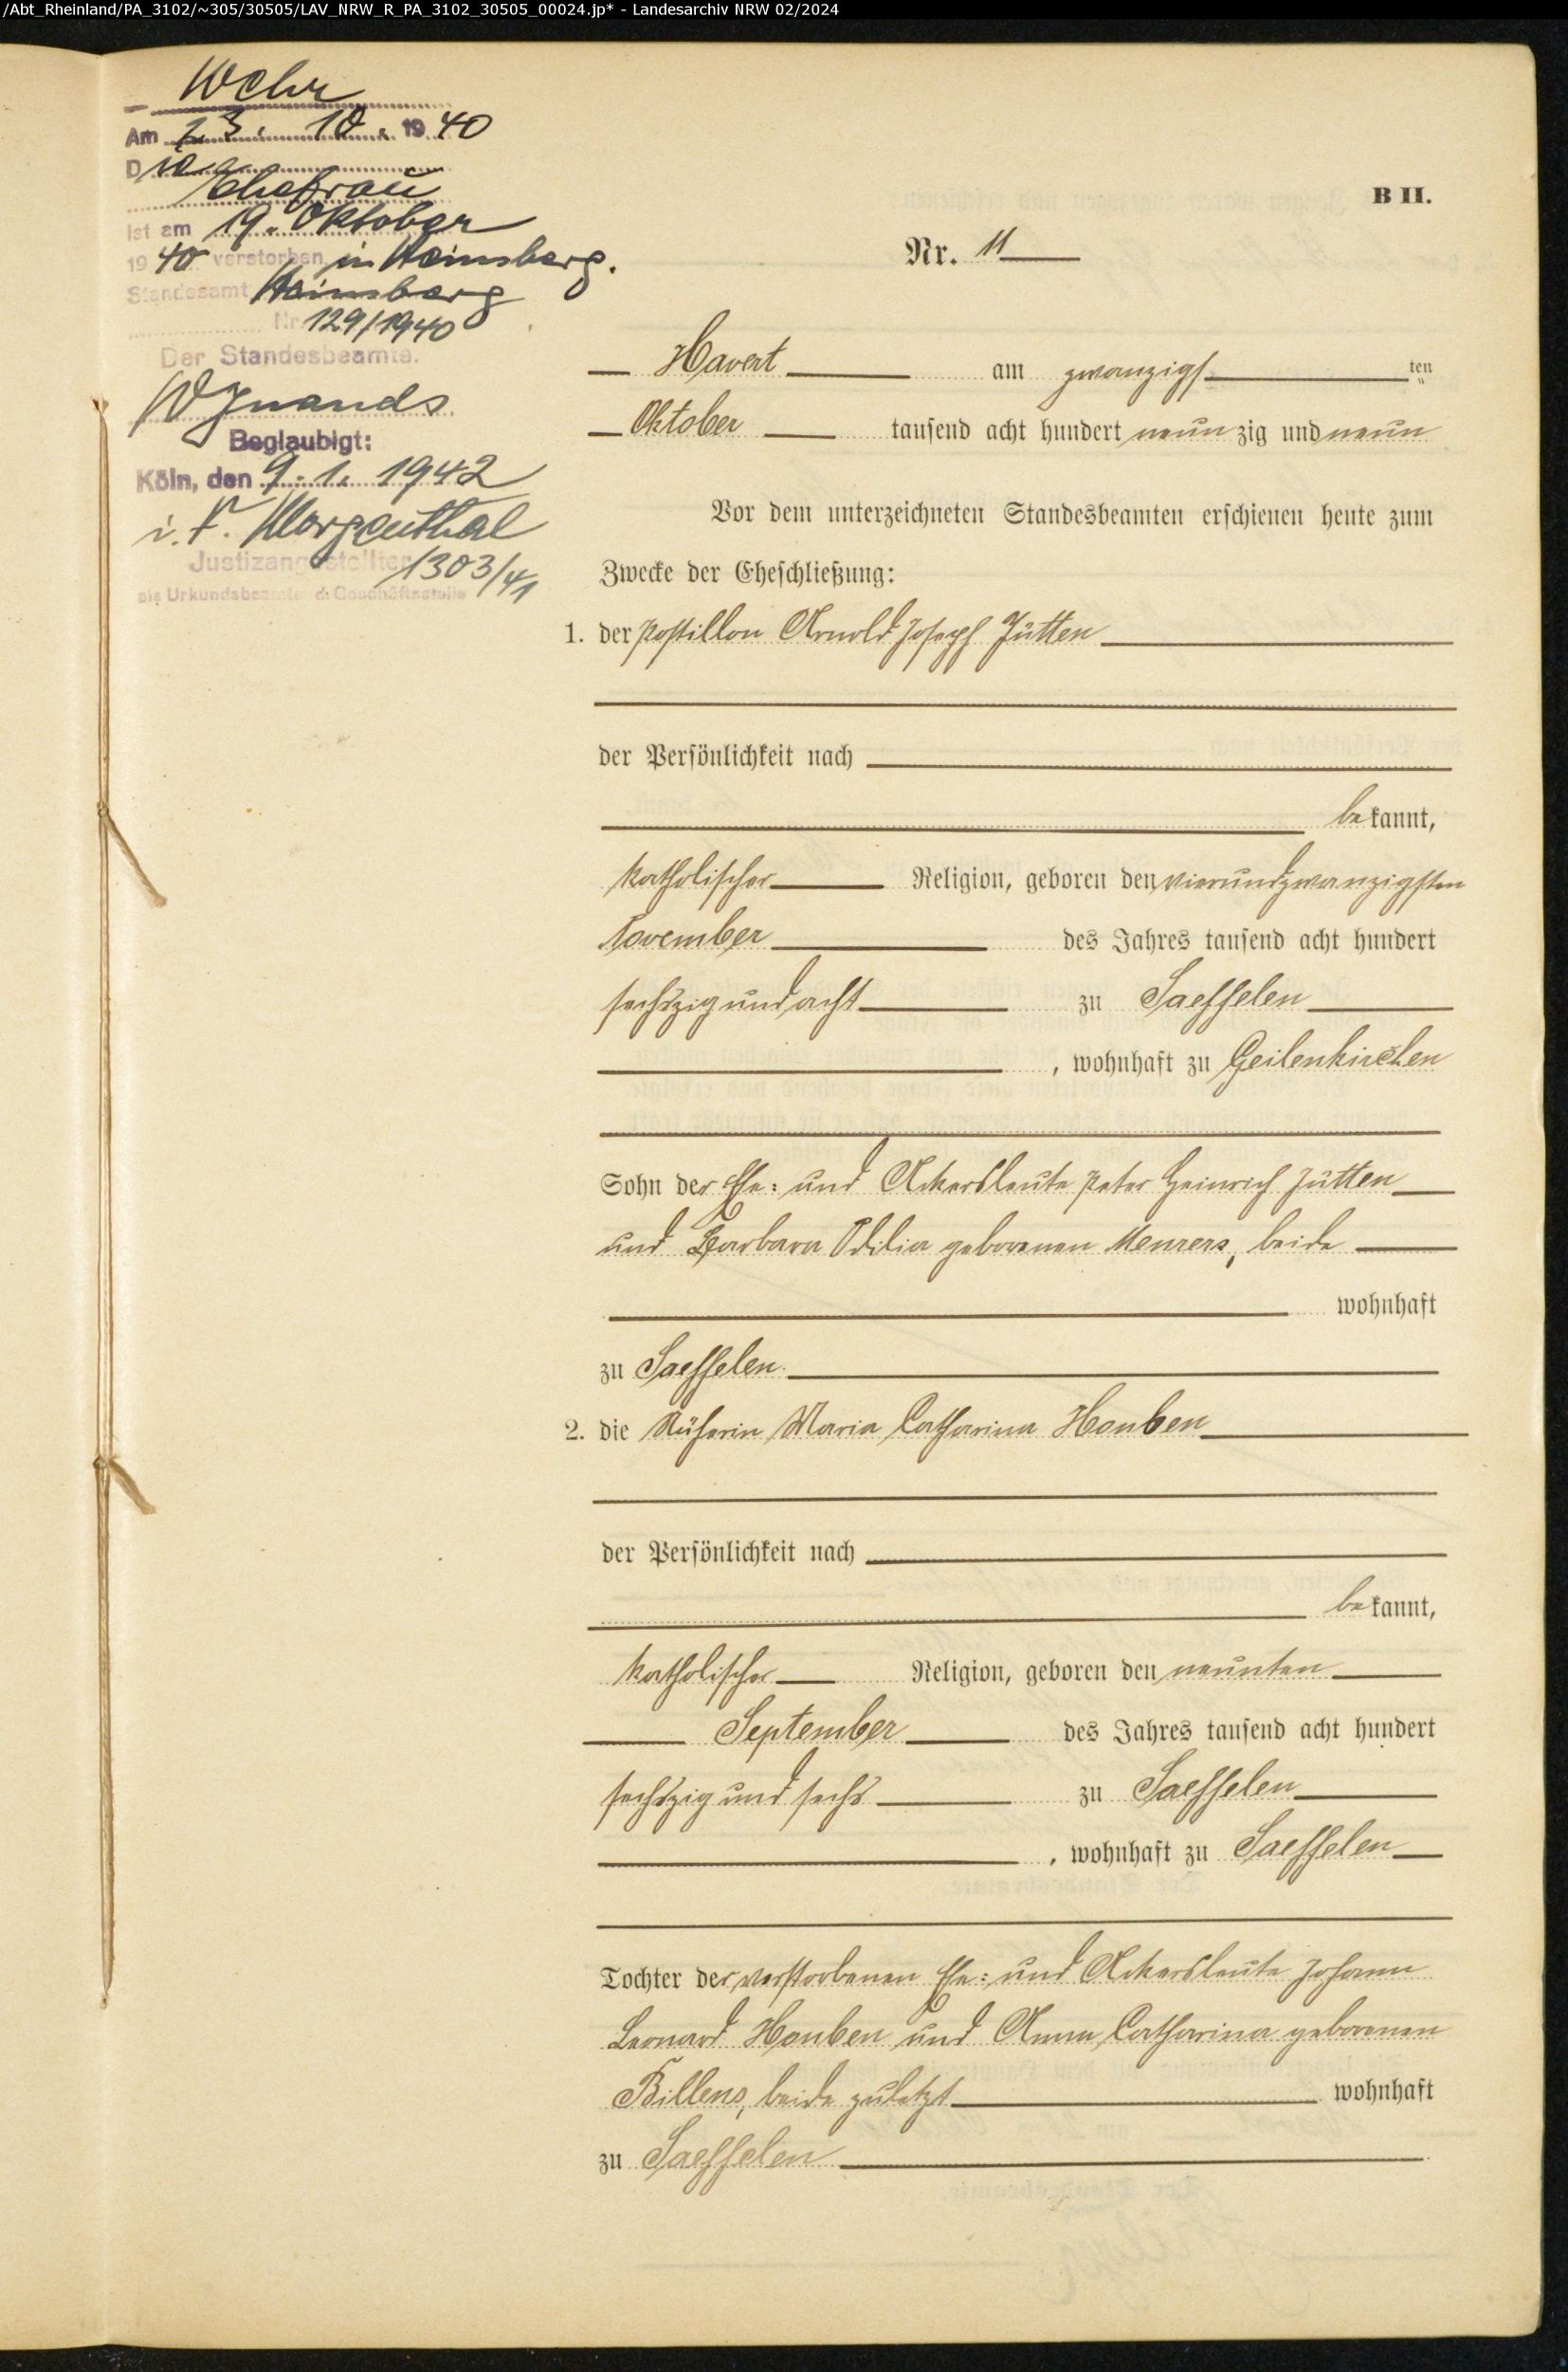 /Abt_Rheinland/PA_3102/~305/30505/LAV_NRW_R_PA_3102_30505_00024.jp* - Landesarchiv NRW 02/2024
Wehr
Am 23. 10. 1940
Die
Ehefrau
ist am 19. Oktober
1940 verstorben in Heinsberg.
Standesamt Heinsberg
Nr 129/1940
Der Standesbeamte.
Beglaubigt:
Köln, den 9. 1. 1942
Morgenthal
Justizangestellter
1303/41
als Urkundsbeamte d. Geschäftsstelle
B II.
Nr. 11
Havert am zwanzigsten
Oktober tausend acht hundert neunzig und neun
Vor dem unterzeichneten Standesbeamten erschienen heute zum
Zwecke der Eheschließung:
1. der Postillon Arnold Joseph Jütten
der Persönlichkeit nach
bekannt,
katholischer Religion, geboren den vierundzwanzigsten
November des Jahres tausend acht hundert
sechszig und acht zu Saeffelen
, wohnhaft zu Geilenkirchen
Sohn der Ehe- und Ackersleute Peter Heinrich Jütten
und Barbara Odilia geborenen Meurers, beide
wohnhaft
zu Saeffelen
2. die Näherin Maria Catharina Houben
der Persönlichkeit nach
bekannt,
katholischer Religion, geboren den neunten
September des Jahres tausend acht hundert
sechszig und sechs zu Saeffelen
, wohnhaft zu Saeffelen
Tochter der verstorbenen Ehe- und Ackersleute Johann
Leonard Houben und Anna Catharina geborenen
Billens, beide zuletzt wohnhaft
zu Saeffelen